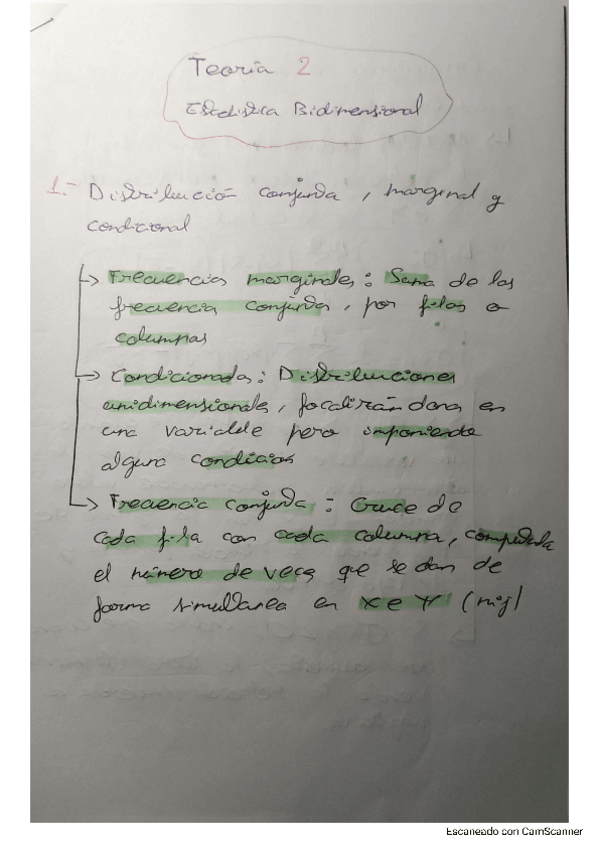 Teoría 2
Estadística Bidimensional
1.- Distribución conjunta, marginal y
condicional
Frecuencias marginales: Suma de las
frecuencia conjunta, por filas o
columnas
Condicionadas: Distribuciones
unidimensionales, focalizándonos en
una variable pero imponiendo
alguna condición
Frecuencia conjunta: Cruce de
cada fila con cada columna, computada
el número de veces que se dan de
forma simultanea en X e Y (nij)
Escaneado con CamScanner